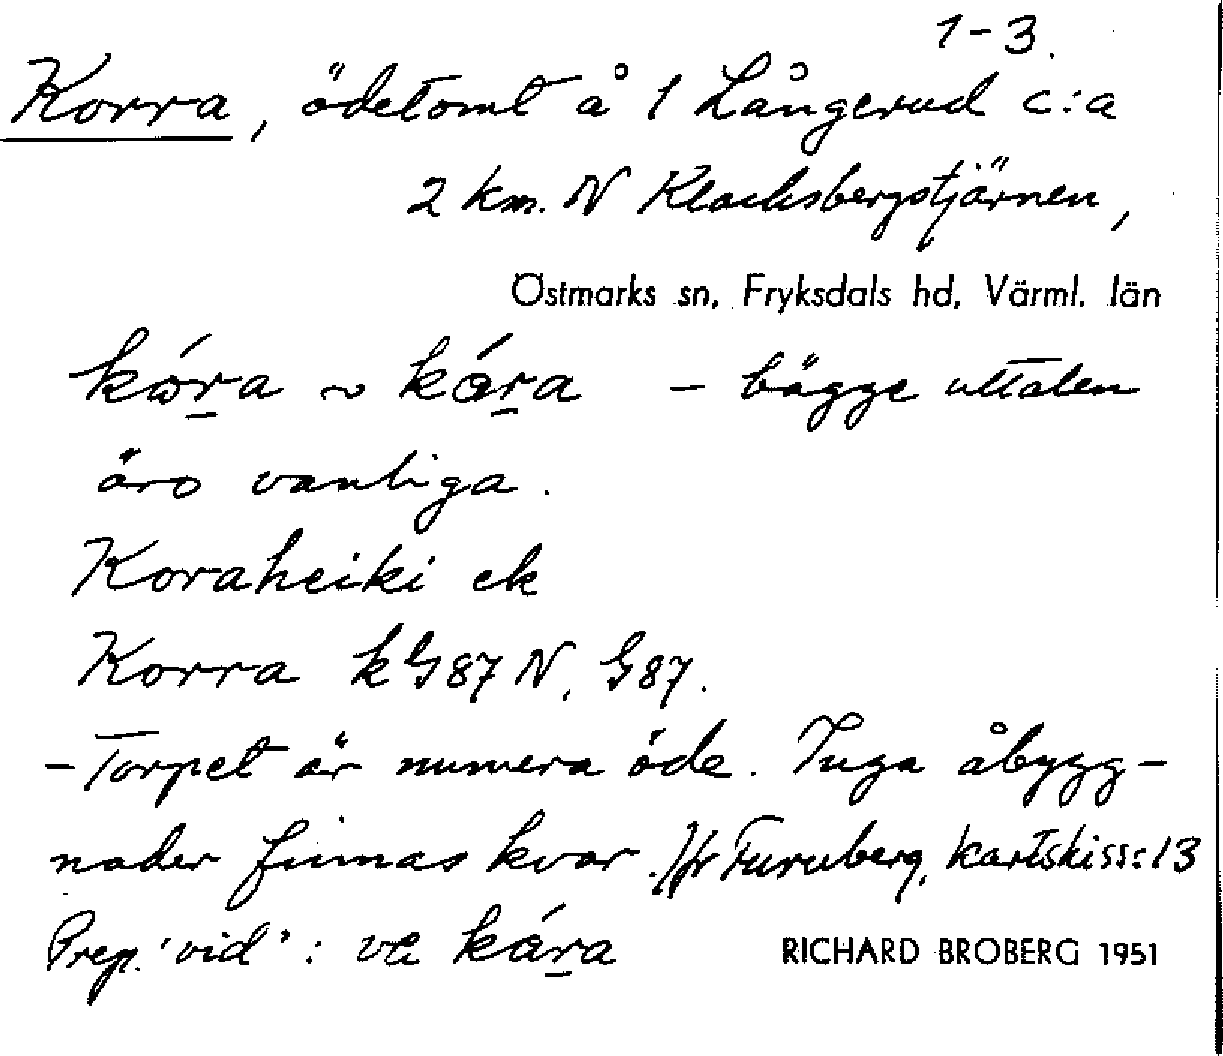 1-3.
Korra, ödetomt å 1 Långerud c:a
2 km. N Klacksbergstjärnen,
Östmarks sn, Fryksdals hd, Värml. län
kώr̲a ~ kǽr̲a - bägge uttalen
äro vanliga.
Koraheiki ek
Korra k G87 N, G87.
- Torpet är numera öde. Inga åbygg-
nader finnas kvar. Jfr Furuberg, kartskiss: 13
Prep. 'vid': va kár̲a
RICHARD BROBERG 1951